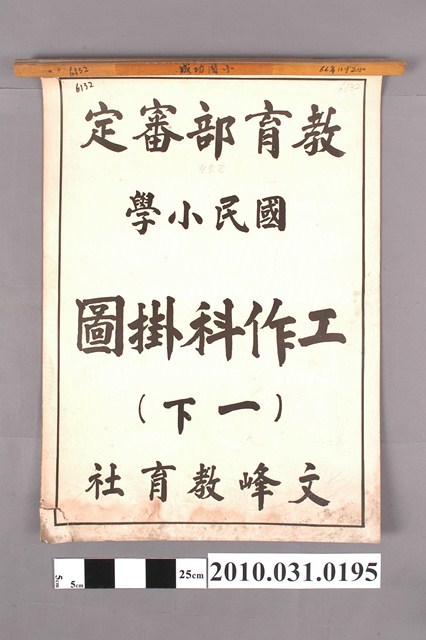 6132
成功國小
6132
教育部審定
國民小學
工作科掛圖
（一下）
文峰教育社
5cm
5cm
25cm
2010.031.0195